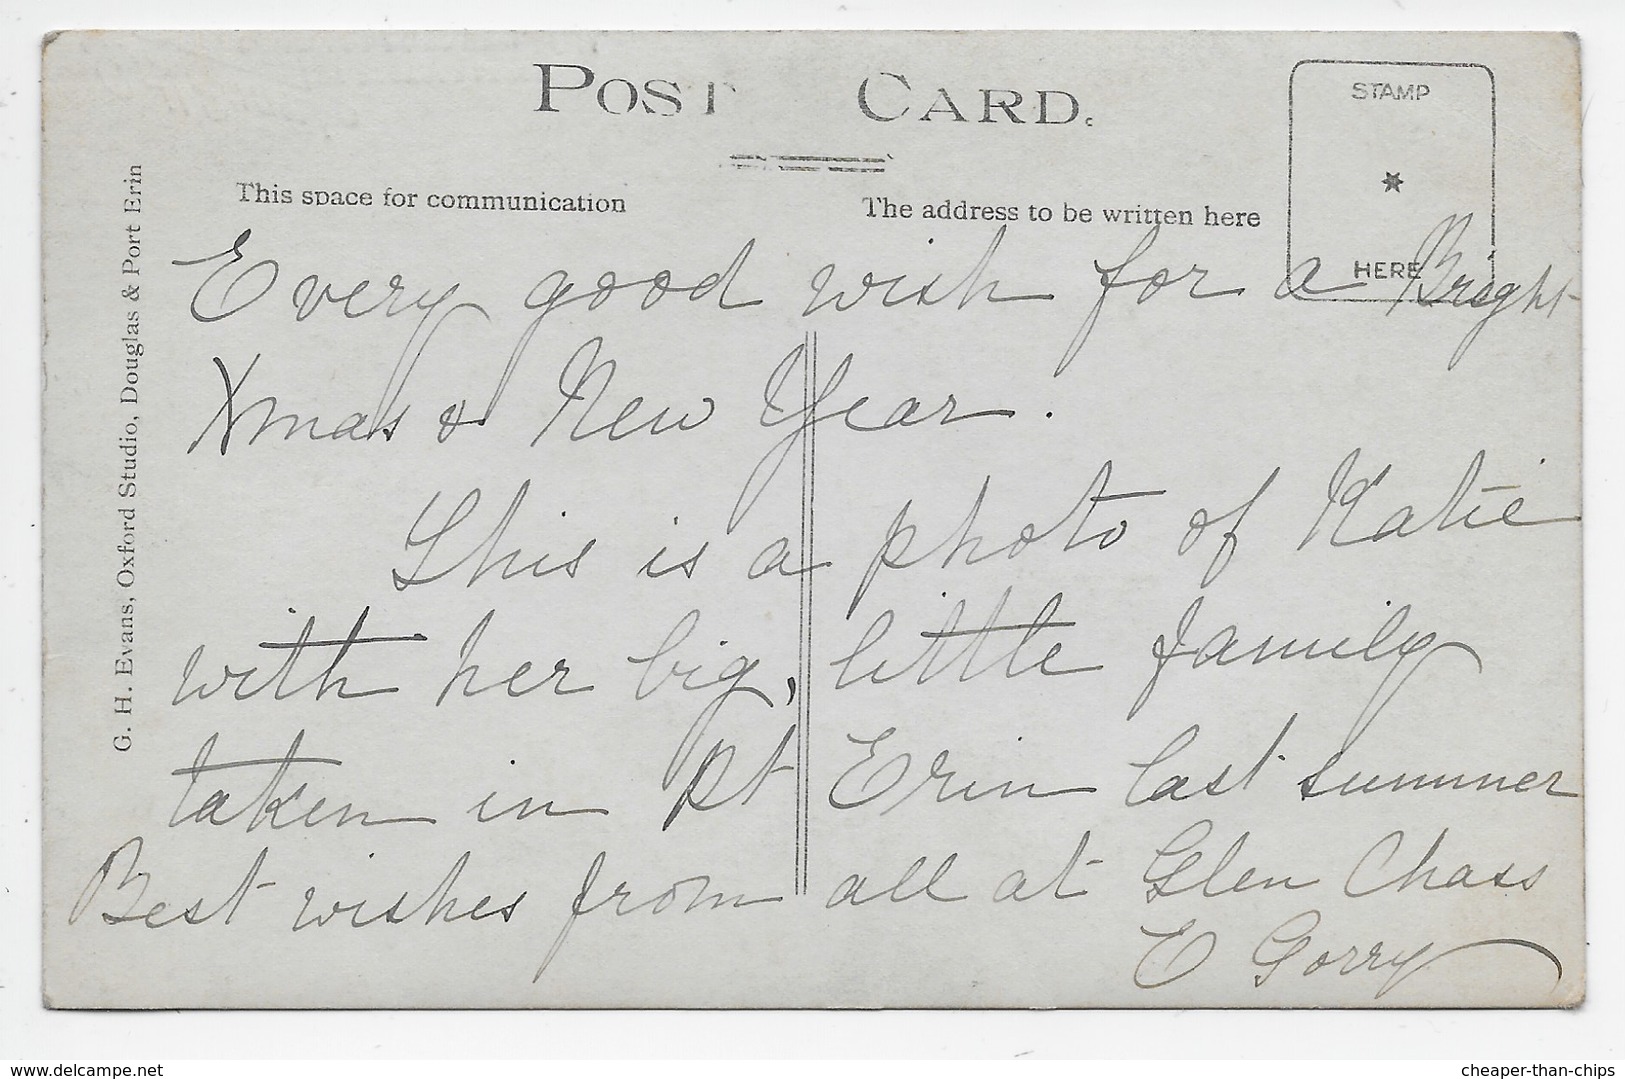 POST CARD.
STAMP
HERE
This space for communication
The address to be written here
G. H. Evans, Oxford Studio, Douglas & Port Erin
Every good wish for a Bright
Xmas & New Year.
This is a photo of Katie
with her big, little family
taken in Pt Erin last summer
Best wishes from all at Glen Chass
E Gorry
delcampe.net
cheaper-than-chips